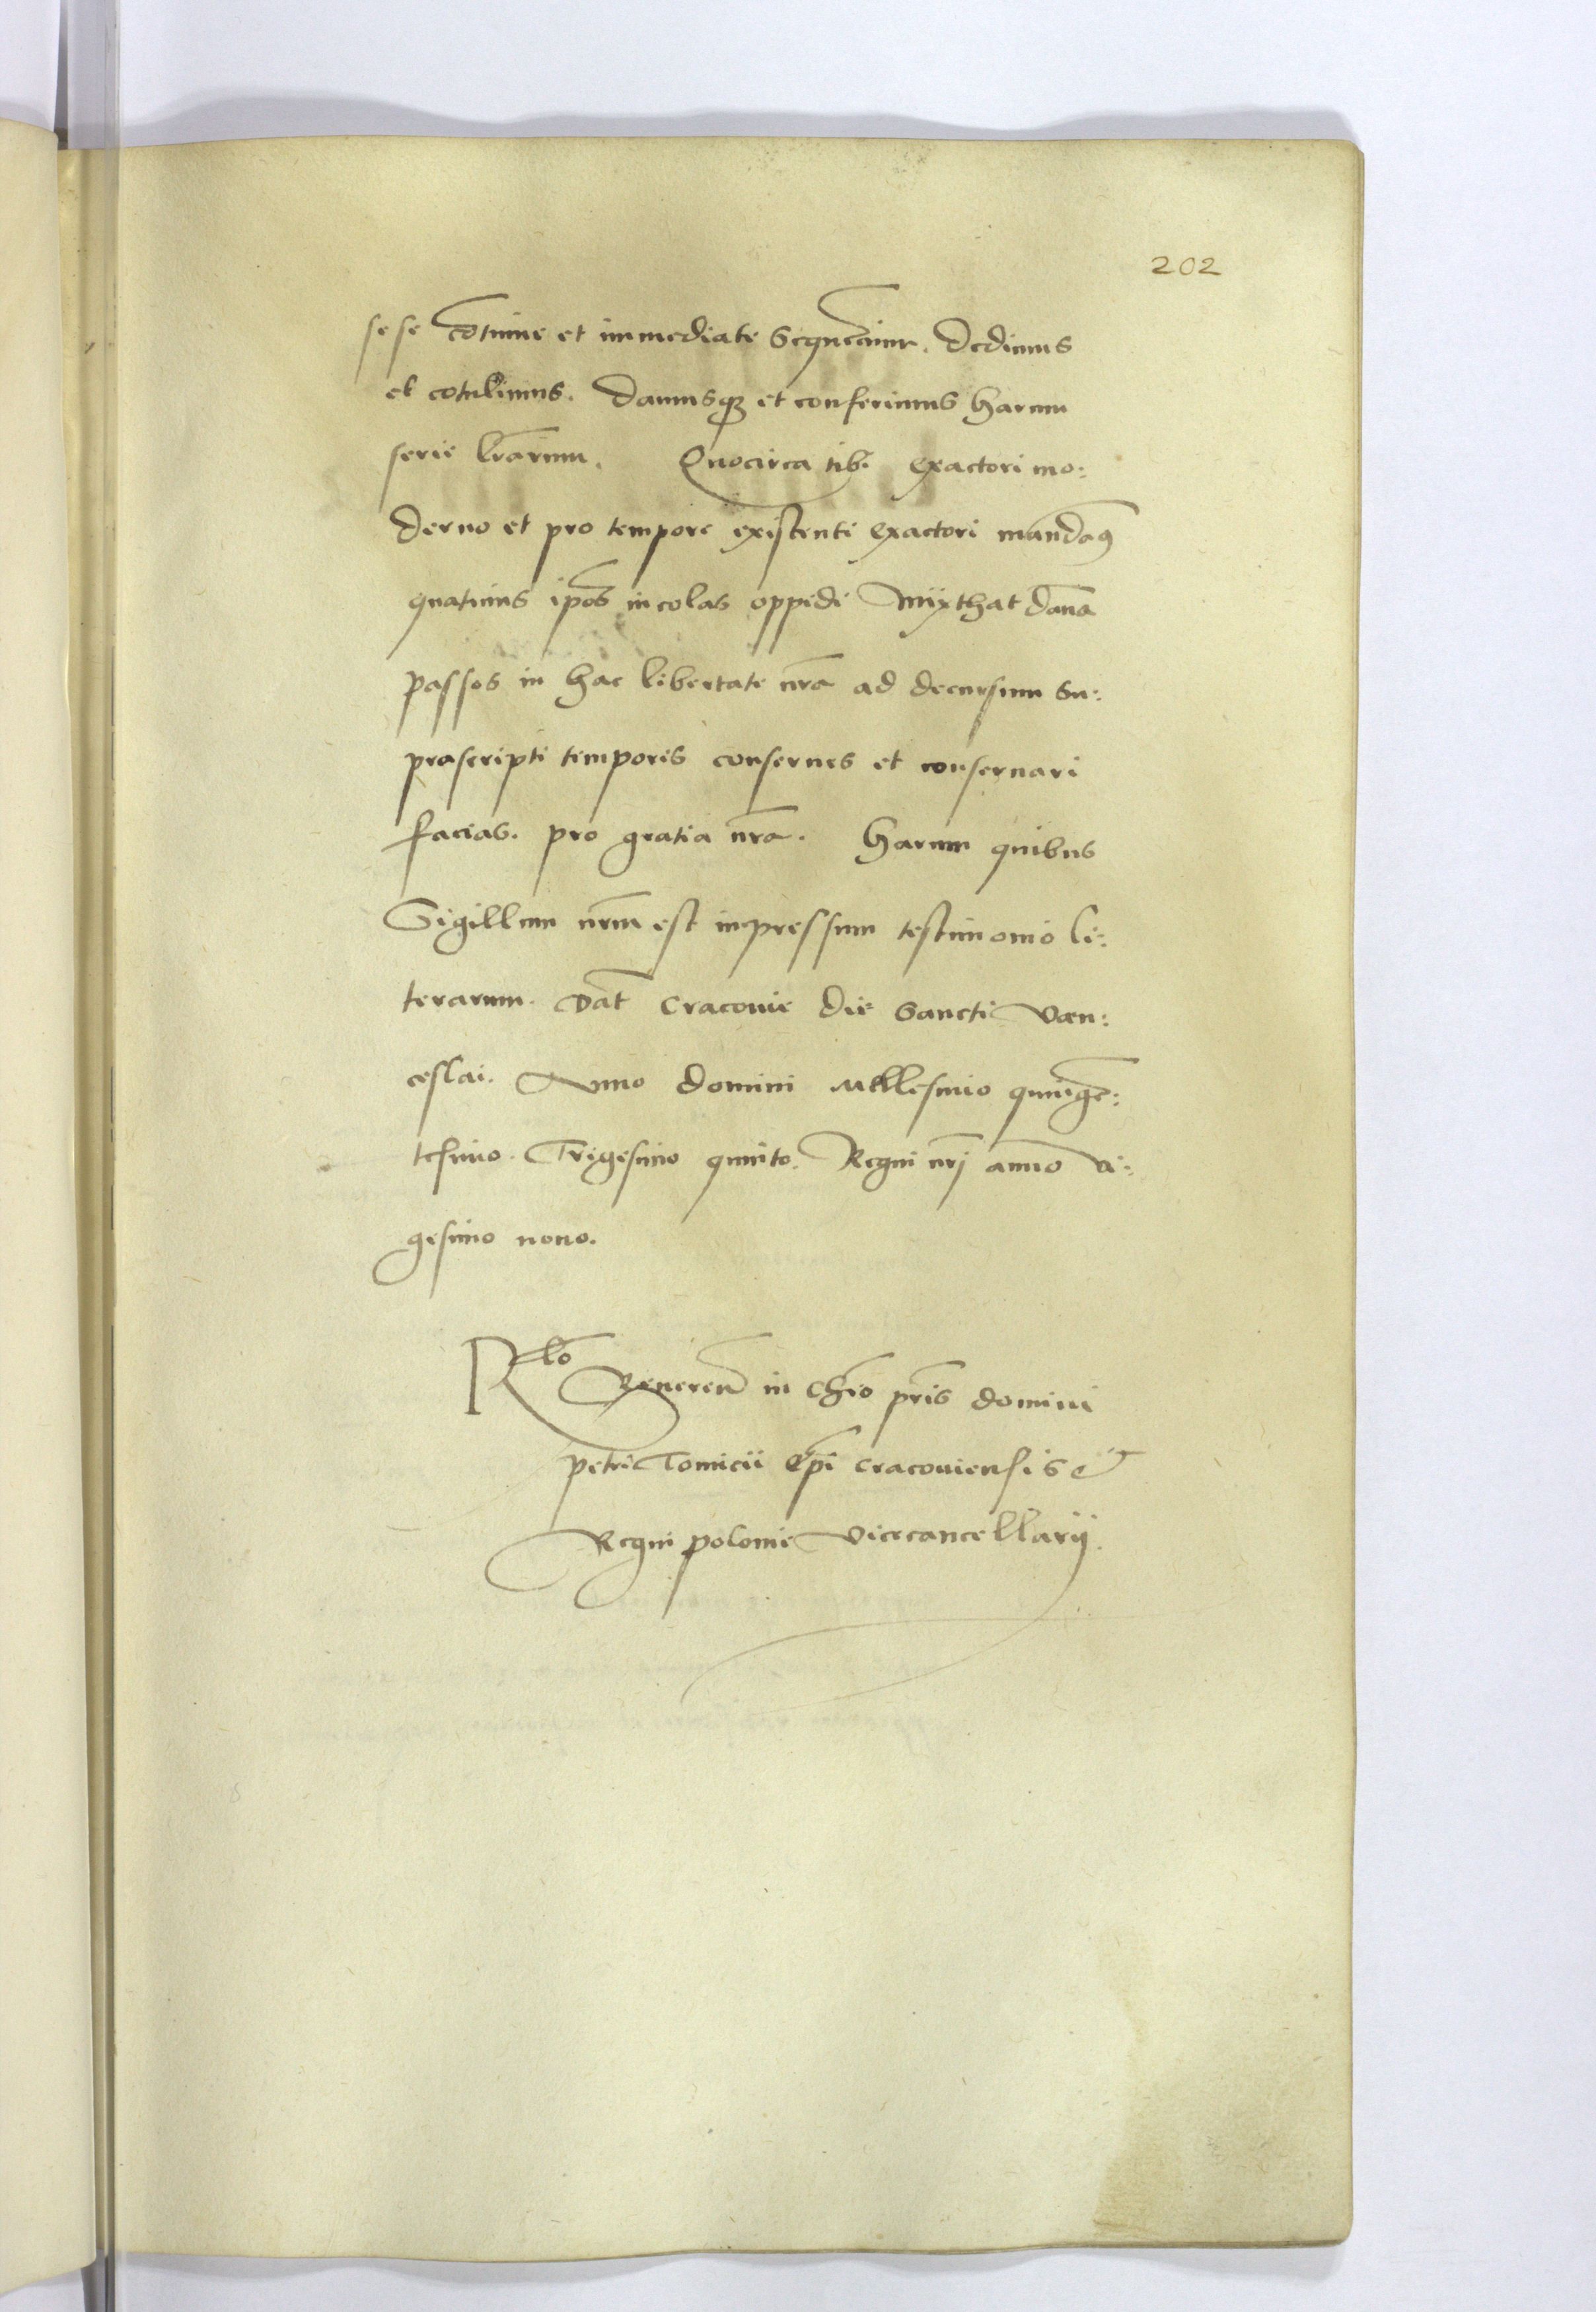 202
se se cōtinue et immediate sequēciuм. Dedimus
et cōtulimus. Damusqꝫ et conferimus harum
serie lr̄arum. Quocirca tibi exactori mo:
derno et pro tempore existenti exactori mandamꝰ
quatinus ip̄os incolas oppidi Mixthat dāna
passos in hac libertate nr̄a ad decursum su:
prascripti temporis conserues et conseruari
facias. pro gratia nr̄a. Harum quibus
Sigillum nr̄um est inpressum testimonio li:
terarum. Dat̄ Cracouie die Sancti Ven:
ceslai. Anno domini Millesimo quingē:
tesimo. Trigesimo quinto. Regni nr̄j anno vi:
gesimo nono.
Rlō
Reueren̄ in Chr̄o pr̄is domini
petri Tomicii Ep̄i Cracouiensis et
Regni polonie Vicecancellarij.